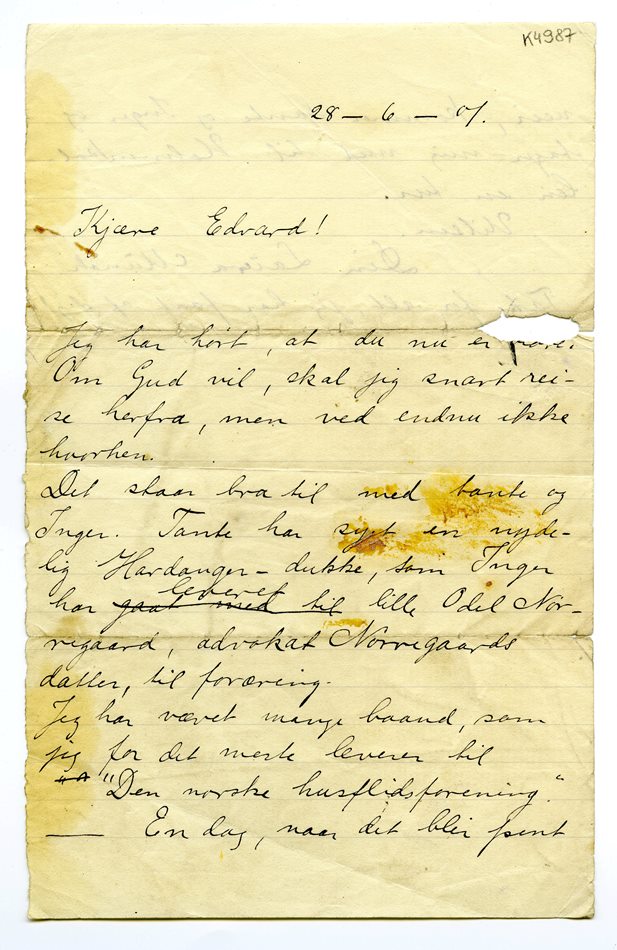 K4987
28 – 6 – 01.
Kjære Edvard!
Jeg har hørt, at du nu er
Om Gud vil, skal jig snart rei-
se herfra, men ved endnu ikke
hvorhen.
Det staar bra til med tante og
Inger. Tante har sygt en nyde-
lig Hardanger-dukke, som Inger
har gaat med leveret til lille Odel Nor-
regaard, advokat Nørregaards
datter, til foræring.
Jeg har vævet mange baand, som
jig for det meste leverer til
"Den norske husflidsforening."
— En dag, naar det blir pent